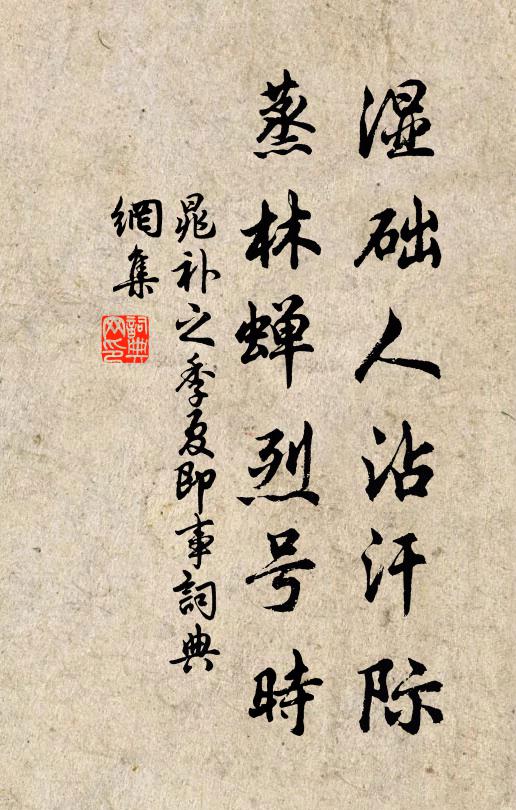 湿础人沾汗际
蒸林蝉烈号時
晁补之季夏即事詞典
網集
詞典
网印